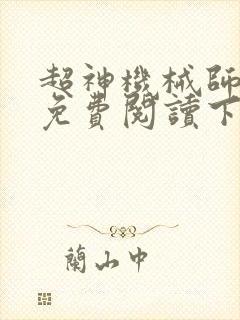 超神機械師
免費閱讀下
蘭山中